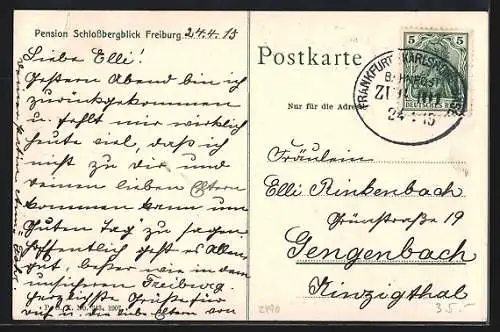 Pension Schloßbergblick Freiburg, 24.4.15
Liebe Elli!
Gestern Abend bin ich
zurückgekommen
u. fehlt mir wirklich
heute viel, daß ich
nicht zu dir und
deinen lieben Eltern
kommen kann um
Guten Tag zu sagen
Hoffentlich geht es Allen
gut, besser wie in dem
unsicheren Freiburg.
Herzlichste Grüße für
dich u. die lieben Eltern von
Postkarte
Nur für die Adresse
5 5
DEUTSCHES REICH
FRANKFURT KARLSRUHE
BAHNPOST
ZUG
24 15
Fräulein
Elli Rinkenbach
Grünstraße 19
Gengenbach
Kinzigthal
3.5.-